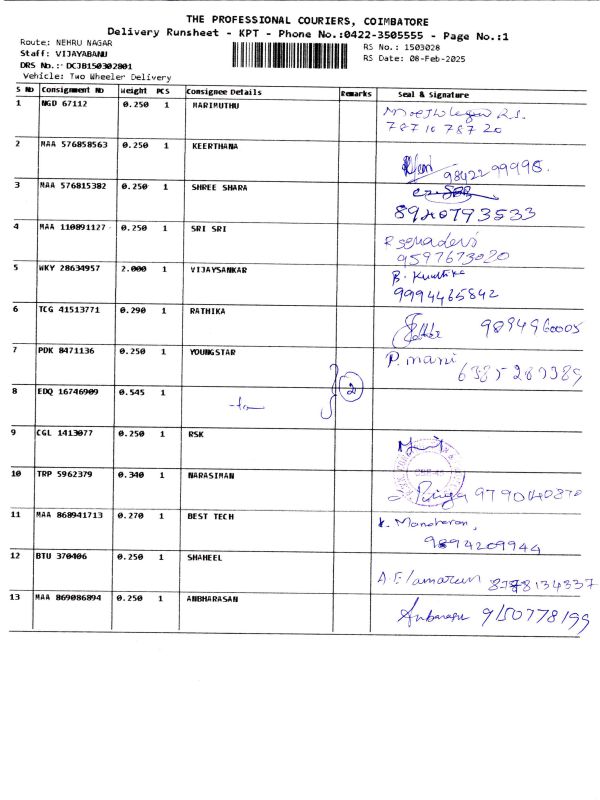 THE PROFESSIONAL COURIERS, COIMBATORE
Delivery Runsheet - KPT - Phone No.:0422-3505555 - Page No.:1
Route: NEHRU NAGAR
RS No.: 1503028
Staff: VIJAYABANU
RS Date: 08-Feb-2025
DRS No.: DCJB150302801
Vehicle: Two Wheeler Delivery
S No Consignment No Weight PCS Consignee Details Remarks Seal & Signature
1 NGD 67112 0.250 1 MARIMUTHU
78710 78720
2 MAA 576858563 0.250 1 KEERTHANA
98422 99998.
3 MAA 576815382 0.250 1 SHREE SHARA
8940793533
4 MAA 110891127 0.250 1 SRI SRI
9597673020
5 WKY 28634957 2.000 1 VIJAYSANKAR
9994465842
6 TCG 41513771 0.290 1 RATHIKA
9894960005
7 PDK 8471136 0.250 1 YOUNGSTAR P. mani
6385289389
8 EDQ 16746909 0.545 1 2
9 CGL 1413077 0.250 1 RSK
10 TRP 5962379 0.340 1 NARASIMAN
9790140870
11 MAA 868941713 0.270 1 BEST TECH K. Manoharan,
9894209944
12 BTU 370406 0.250 1 SHAHEEL
8778134337
13 MAA 869086894 0.250 1 ANBHARASAN
Anbarasu 9150778199